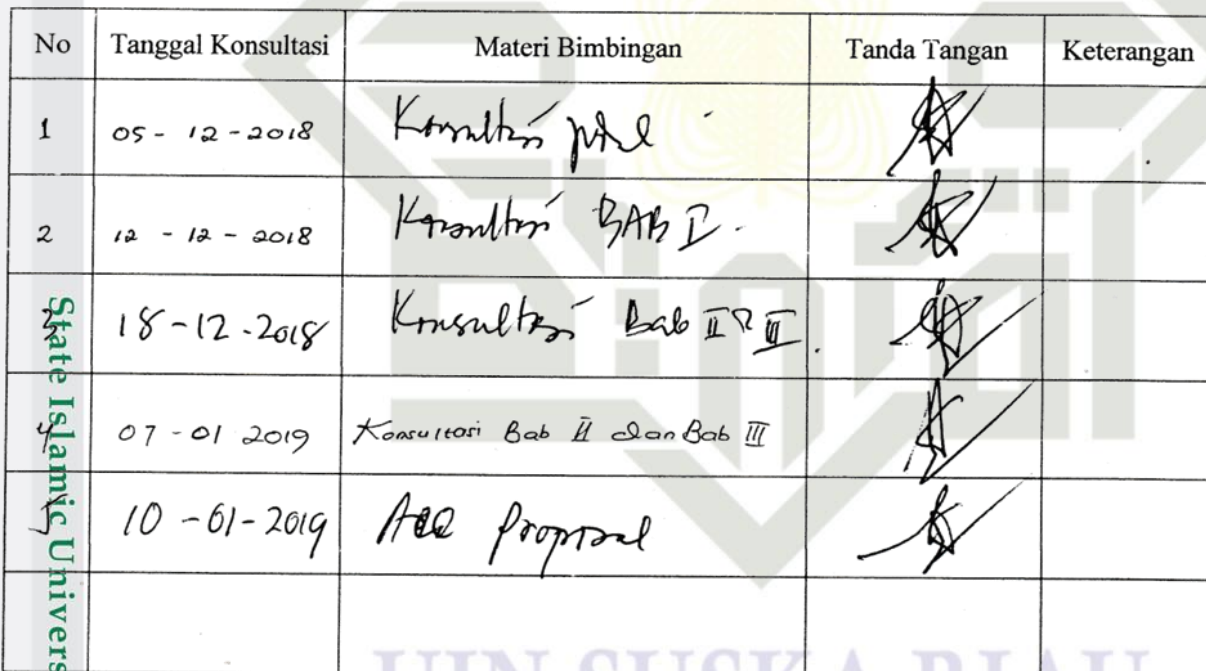 No Tanggal Konsultasi Materi Bimbingan Tanda Tangan Keterangan
1 05 - 12 - 2018 Konsultasi judul
2 12 - 12 - 2018 Konsultasi BAB I.
3 18 - 12 - 2018 Konsultasi Bab II & III.
4 07 - 01 2019 Konsultasi Bab II dan Bab III
5 10 - 01 - 2019 Acc Proposal
State Islamic Univers
UIN SUSKA RIAU